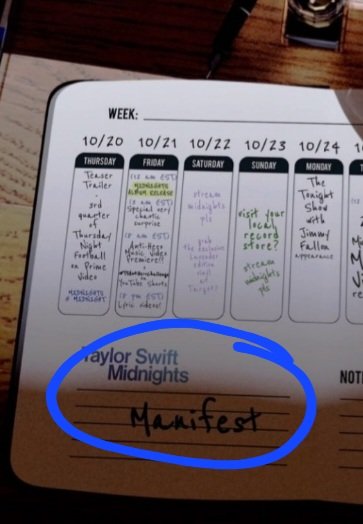 WEEK:
10/20 10/21 10/22 10/23 10/24
THURSDAY FRIDAY SATURDAY SUNDAY MONDAY
Teaser
Trailer
3rd
quarter
of
Thursday
Night
Football
on Prime
Video
MIDNIGHTS @ MIDNIGHT
(12 am EST)
MIDNIGHTS
ALBUM RELEASE
(3 am EST)
Special very
chaotic
surprise
(8 am EST)
Anti-Hero
Music Video
Premiere!!
YouTube Shorts
(8 pm EST)
Lyric videos!
stream
midnights
pls
grab
the exclusive
lavender
edition
vinyl
at
Target!
visit your
local
record
store?
stream
midnights
pls
The
Tonight
Show
with
Jimmy
Fallon
appearance
Taylor Swift
Midnights
Manifest